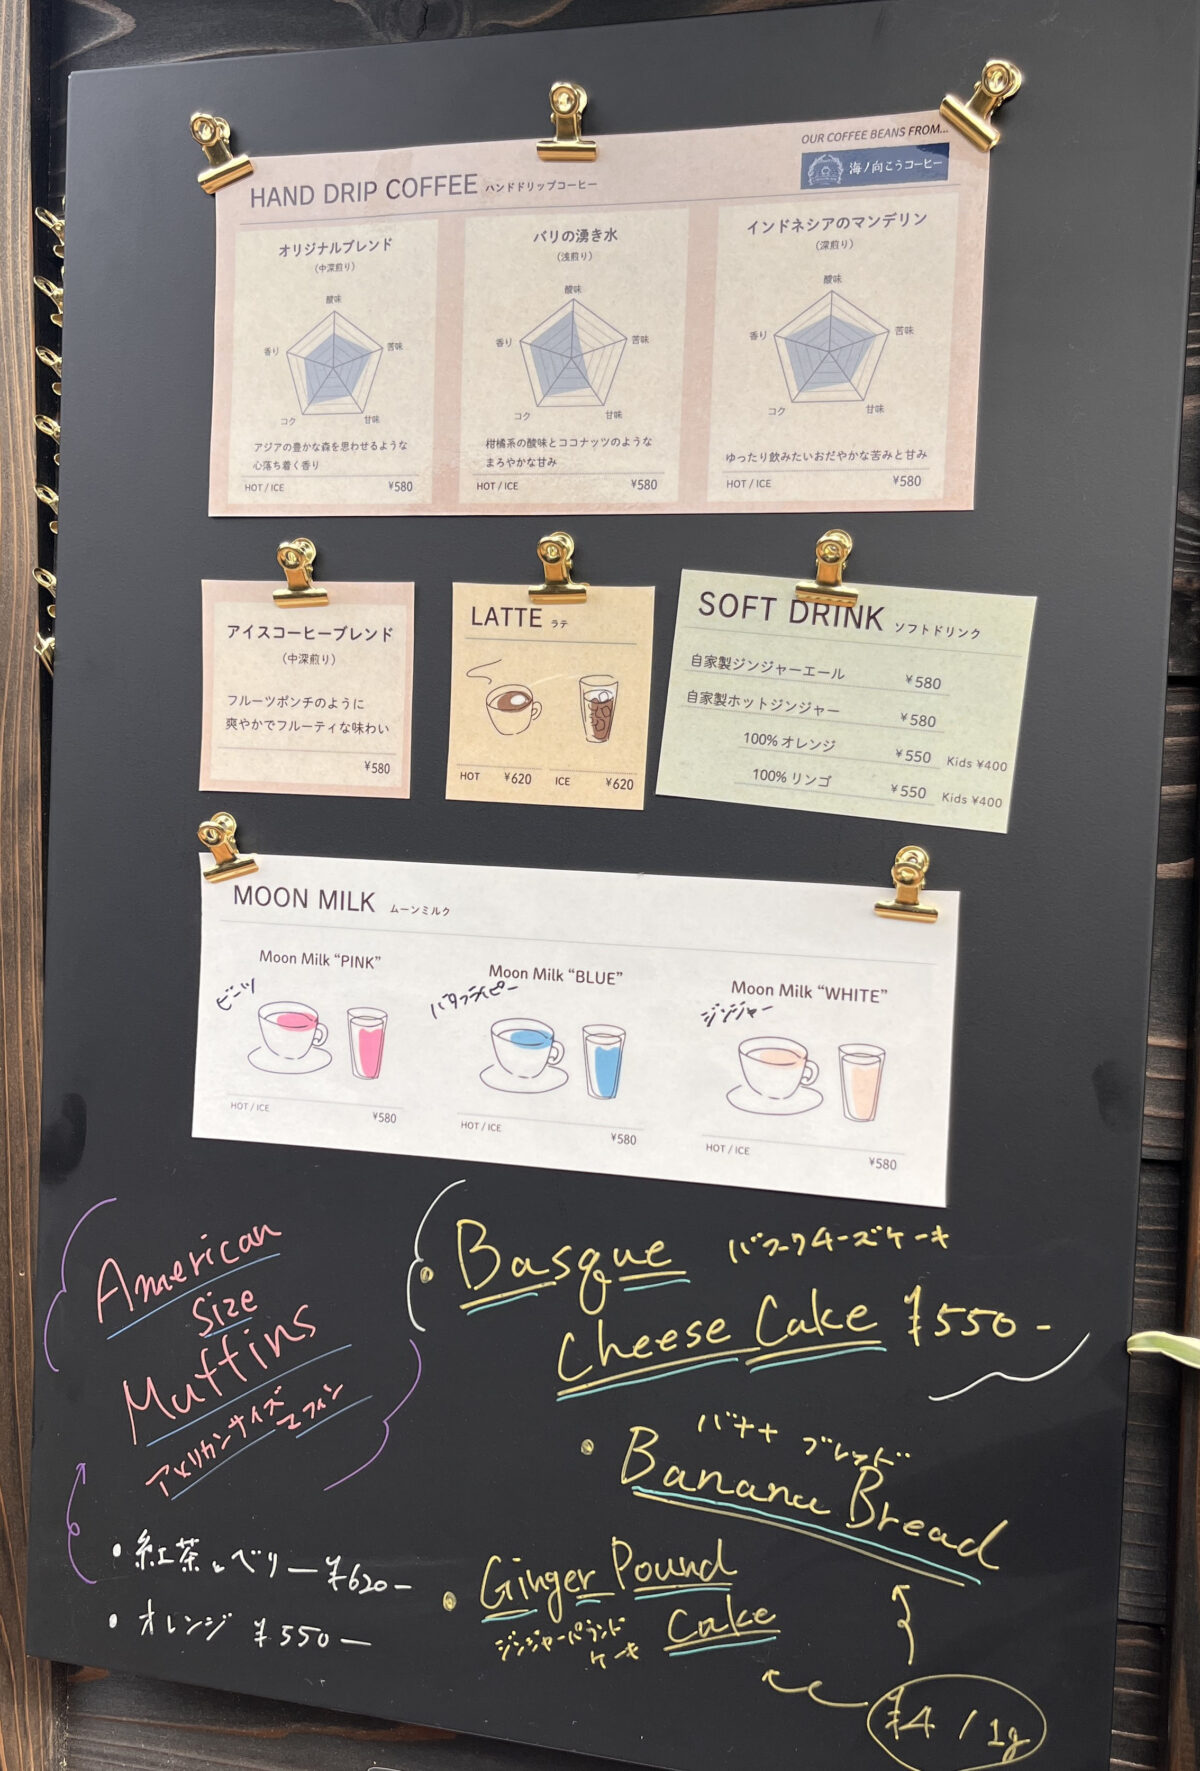 OUR COFFEE BEANS FROM...
海ノ向こうコーヒー
HAND DRIP COFFEE ハンドドリップコーヒー
オリジナルブレンド
(中深煎り)
酸味
香り
苦味
コク
甘味
アジアの豊かな森を思わせるような
心落ち着く香り
HOT / ICE ¥580
バリの湧き水
(浅煎り)
酸味
香り
苦味
コク
甘味
柑橘系の酸味とココナッツのような
まろやかな甘み
HOT / ICE ¥580
インドネシアのマンデリン
(深煎り)
酸味
香り
苦味
コク
甘味
ゆったり飲みたいおだやかな苦みと甘み
HOT / ICE ¥580
アイスコーヒーブレンド
(中深煎り)
フルーツポンチのように
爽やかでフルーティな味わい
¥580
LATTE ラテ
HOT ¥620 ICE ¥620
SOFT DRINK ソフトドリンク
自家製ジンジャーエール ¥580
自家製ホットジンジャー ¥580
100% オレンジ ¥550 Kids ¥400
100% リンゴ ¥550 Kids ¥400
MOON MILK ムーンミルク
Moon Milk “PINK”
ビーツ
HOT / ICE ¥580
Moon Milk “BLUE”
バタフライピー
HOT / ICE ¥580
Moon Milk “WHITE”
ジンジャー
HOT / ICE ¥580
American
Size
Muffins
アメリカンサイズ
マフィン
・紅茶とベリー ¥620-
・オレンジ ¥550-
・Basque バスクチーズケーキ
Cheese Cake ¥550-
バナナ ブレッド
・Banana Bread
・Ginger Pound
Cake
ジンジャーパウンド
ケーキ
¥4 / 1g